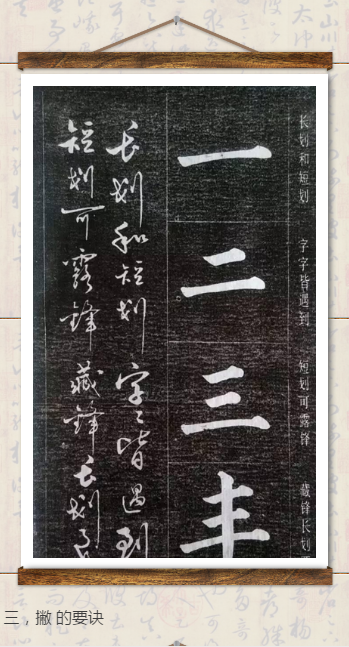 长划和短划 字字皆遇到 短划可露锋 藏锋长划
一二三丰
长划和短划 字々皆遇到
短划可露锋 藏锋长划
三，撇 的要诀